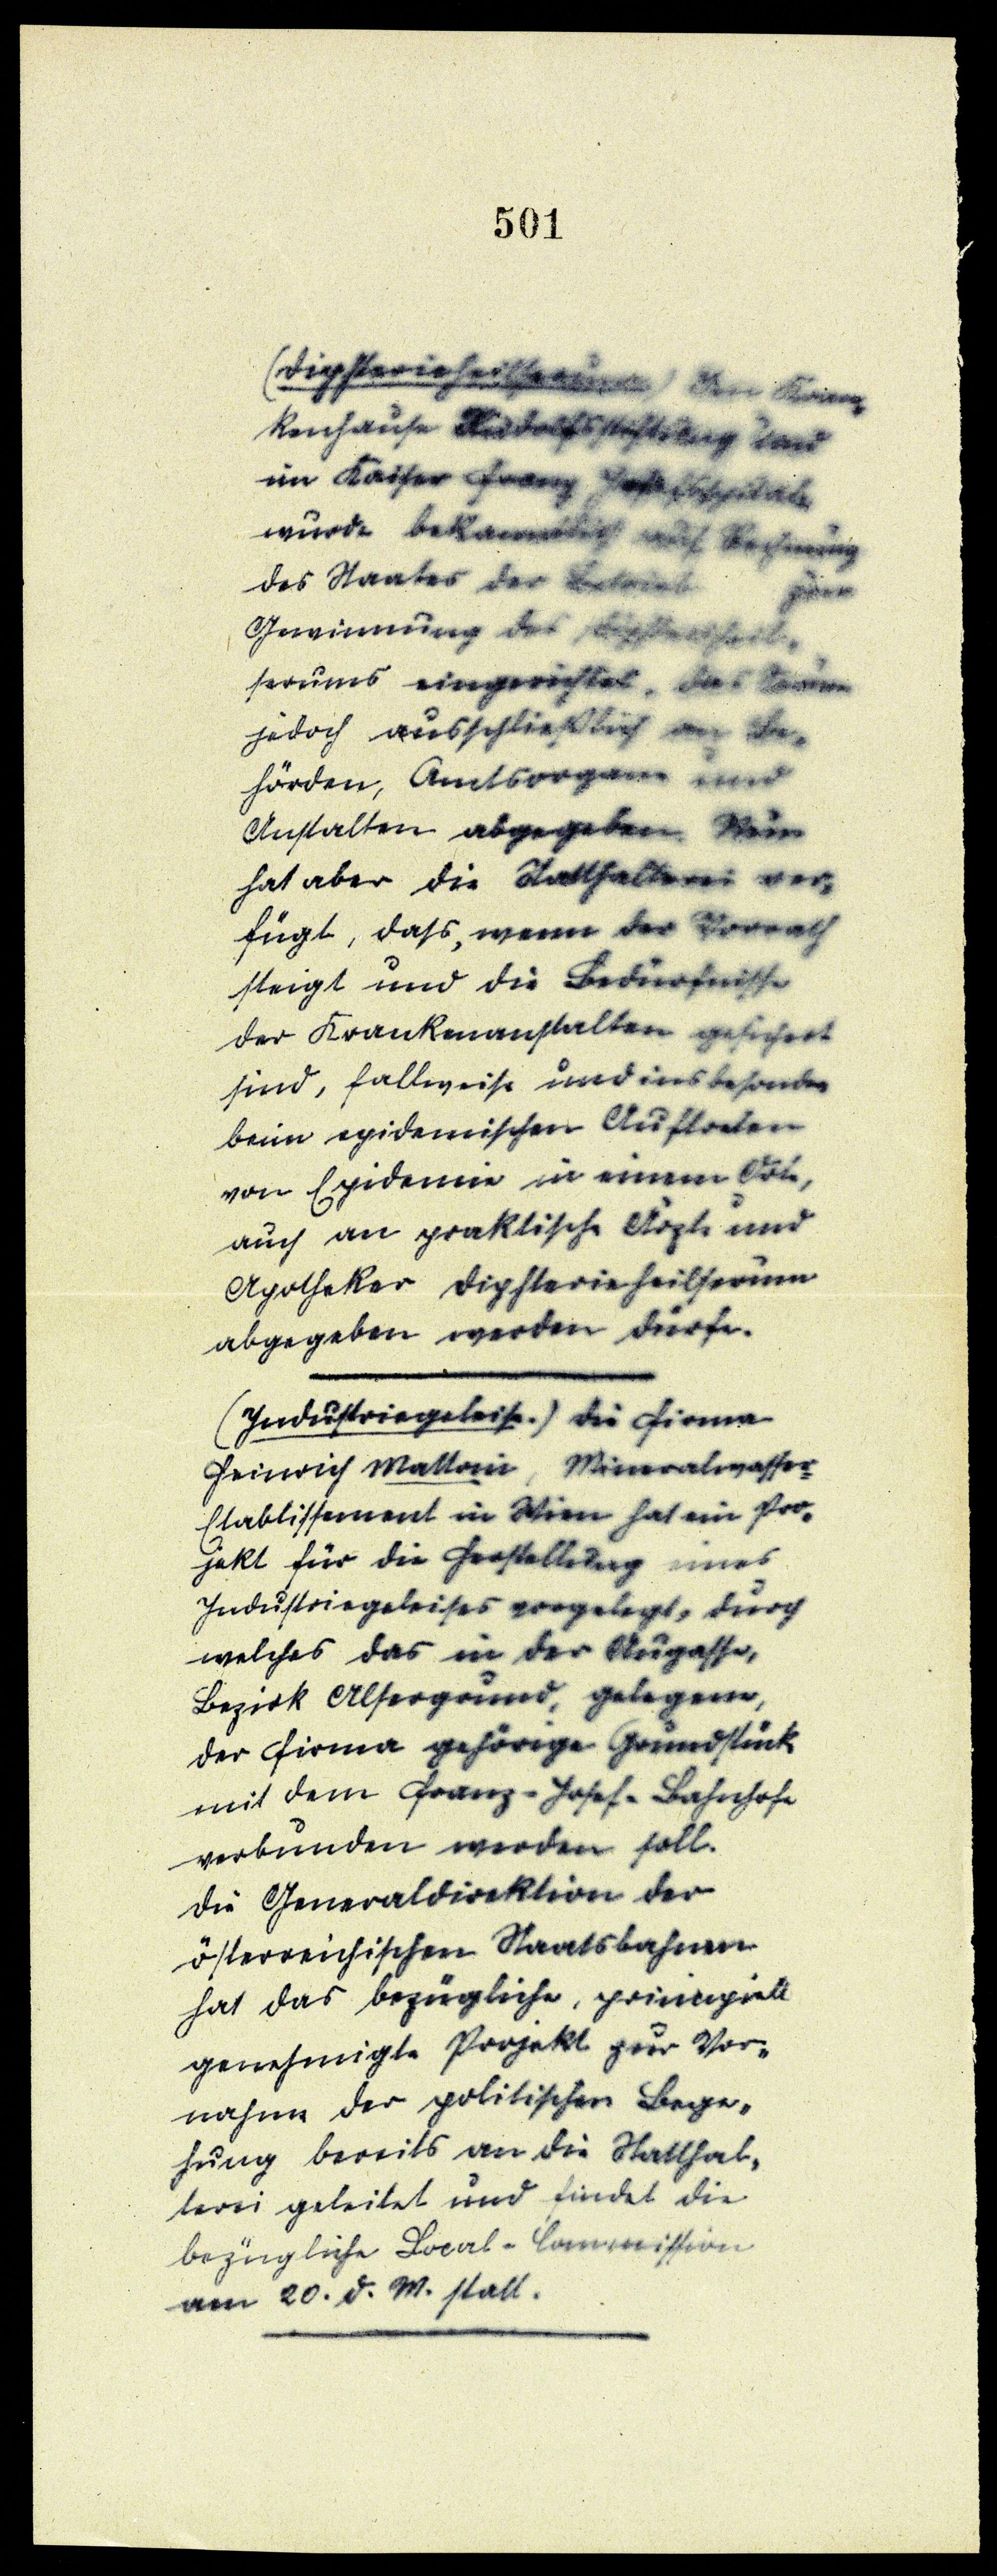 501
(Diphterieheilserum) Im Kran-
kenhause Rudolfsstiftung und
im Kaiser Franz Josefsspitale
wurde bekanntlich auf Rechnung
des Staates der Betrieb zur
Gewinnung des Diphterieheil-
serums eingerichtet, das
jedoch ausschließlich an Be-
hörden, Amtsorgane und
Anstalten abgegeben. Nun
hat aber die Statthalterei ver-
fügt, dass, wenn der Vorrath
steigt und die Bedürfnisse
der Krankenanstalten gesichert
sind, fallweise und insbesondere
beim epidemischen Auftreten
von Epidemie in einem Orte,
auch an praktische Ärzte und
Apotheker Diphterieheilserum
abgegeben werden dürfe.
(Industriegeleise.) Die Firma
Heinrich Mattoni, Mineralwasser-
Etablissement in Wien hat ein Pro-
jekt für die Herstellung eines
Industriegeleises vorgelegt, durch
welches das in der Augasse,
Bezirk Alsergrund, gelegene,
der Firma gehörige Grundstück
mit dem Franz-Josef-Bahnhofe
verbunden werden soll.
Die Generaldirektion der
österreichischen Staatsbahnen
hat das bezügliche, principiell
genehmigte Projekt zur Vor-
nahme der politischen Bege-
hung bereits an die Statthal-
terei geleitet und findet die
bezügliche Local-Commission
am 20. d. M. statt.